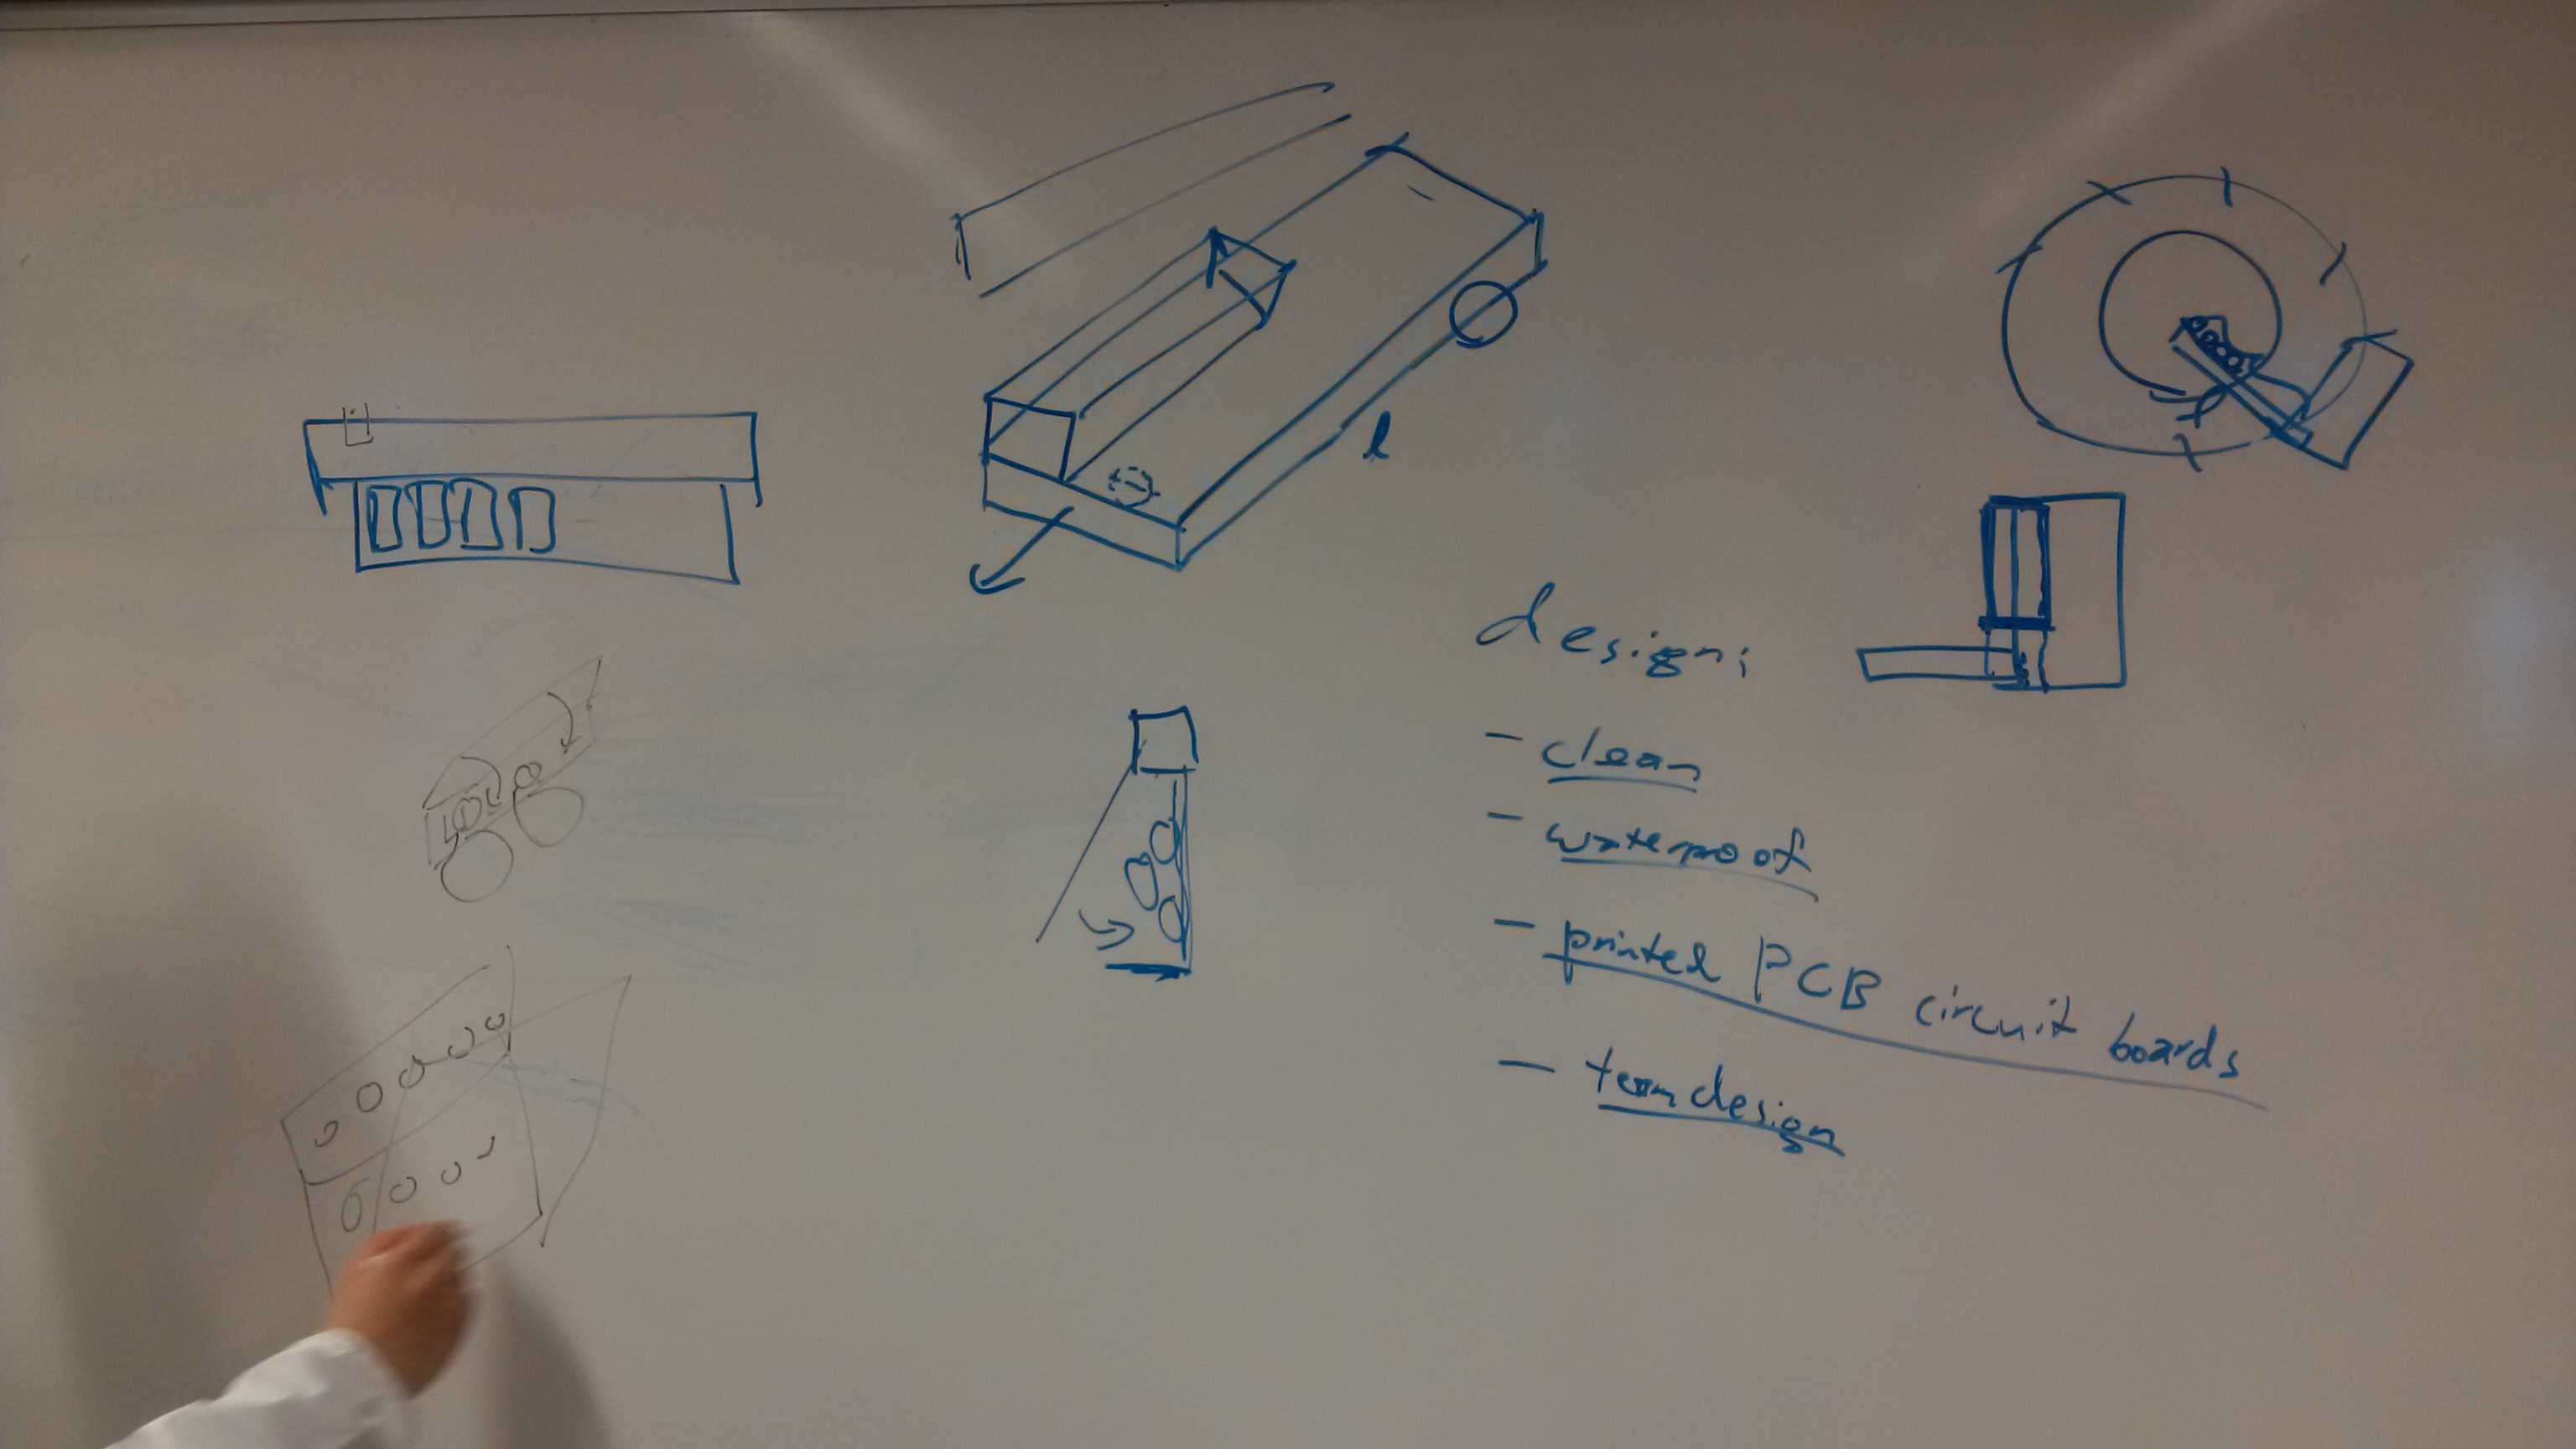 l
design:
- clean
- waterproof
- printed PCB circuit boards
- team design